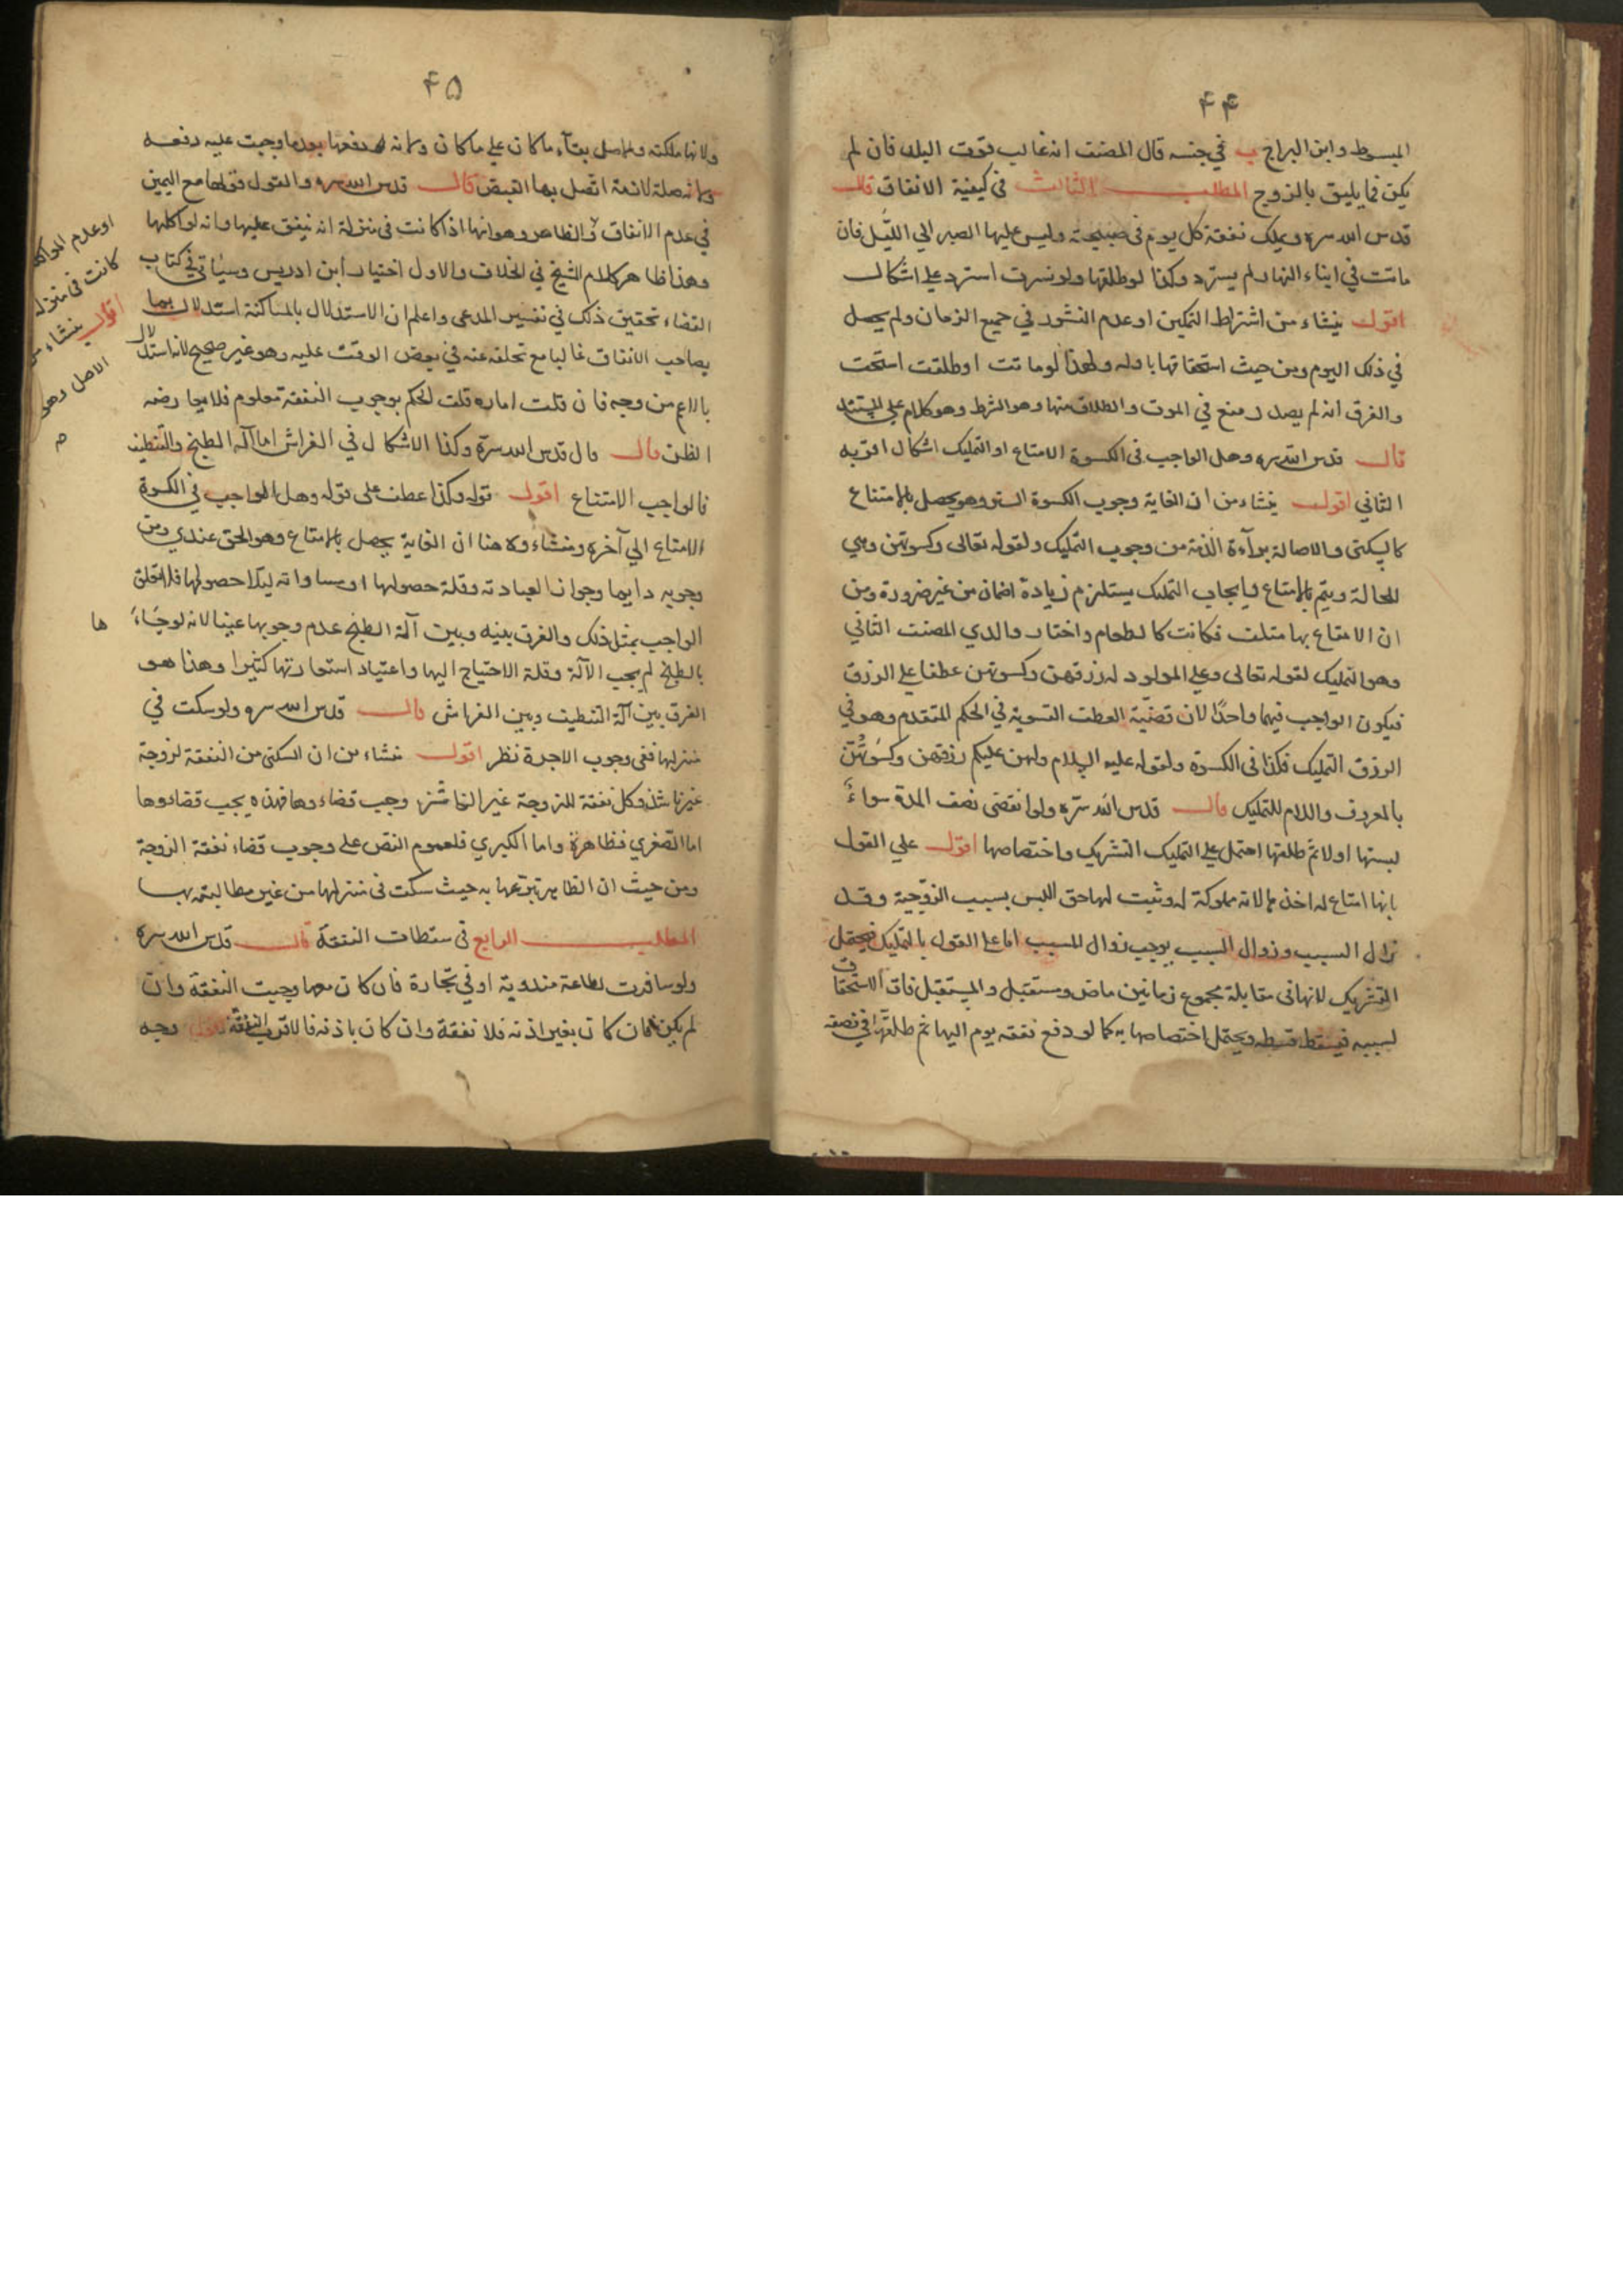 ۴۴
المبسوط وابن البراج ب في جنسه قال المصنف انه غالب قوت البلد فان لم
يكن فما يليق بالزوج المطلب الثالث في كيفية الانفاق قال
قدس الله سره ويملك نفقة كل يوم في صبيحته وليس عليها الصبر الي الليل فان
ماتت في اثناء النهار لم يسترد وكذا لو طلقها ولو نشزت استرد علي اشكال
اقول ينشاء من اشتراط التمكين او عدم النشوز في جميع الزمان ولم يحصل
في ذلك اليوم ومن حيث استحقاقها باوله ولهذا لو ماتت او طلقت استحقت
والفرق انه لم يصدر منع في الموت والطلاق منها وهو الشرط وهو كلام علي المستند
قال قدس الله سره وهل الواجب في الكسوة الامتاع او التمليك اشكال اقربه
الثاني اقول ينشاء من ان الغاية وجوب الكسوة الستر وهو يحصل بالامتاع
كالسكنى والاصالة براءة الذمة من وجوب التمليك ولقوله تعالى وكسوتهن وهي
للحالة ويتم بالامتاع وايجاب التمليك يستلزم زيادة اضمان من غير ضرورة ومن
ان الامتاع بها متلف فكانت كالطعام واختار والدي المصنف الثاني
وهو التمليك لقوله تعالى وعلي المولود له رزقهن وكسوتهن عطفا علي الرزق
فيكون الواجب فيهما واحدًا لان قضية العطف التسوية في الحكم المتقدم وهو في
الرزق التمليك فكذا في الكسوة ولقوله عليه السلام ولهن عليكم رزقهن وكسوتهن
بالمعروف واللام للتمليك قال قدس الله سره ولو انقضى نصف المدة سواء
لبستها اولا ثم طلقها احتمل علي التمليك التشريك واختصاصها اقول علي القول
بانها امتاع له اخذها لانه مملوكة له وثبت لها حق اللبس بسبب الزوجية وقد
زال السبب وزوال السبب يوجب زوال المسبب اما علي القول بالتمليك فيحتمل
التشريك لانها في مقابلة مجموع زمانين ماض ومستقبل والمستقبل فات الاستحقاق
لسببه فيسقط قسطه ويحتمل اختصاصها به كما لو دفع نفقة يوم اليها ثم طلقها في نصفه
۴۵
ولانها ملكته والاصل بقاء ما كان علي ما كان ولانه دفعها بعدما وجبت عليه دفعه
ولانه صلة لازمة اتصل بها القبض قال قدس الله سره والقول قولها مع اليمين
في عدم الانفاق والظاهر وهو انها اذا كانت في منزله انه ينفق عليها وانه لو اكلها
وهذا ظاهر كلام الشيخ في الخلاف والاول اختيار ابن ادريس وسياتي في كتاب
القضاء تحقيق ذلك في تفسير المدعى واعلم ان الاستدلال بالمساكنة استدلال بما
يصاحب الانفاق غالبا مع تخلفه عنه في بعض الوقت عليه وهو غير صحيح لانه استدلال
بالاعم من وجه فان قلت اماره قلت الحكم بوجوب النفقة معلوم فلا يعارضه
الظن قال قال قدس الله سره وكذا الاشكال في الفراش اما آلة الطبخ والتنظيف
فالواجب الامتناع اقول قوله وكذا عطف على قوله وهل الواجب في الكسوة
الامتاع الي آخره ومنشاءه هنا ان الغاية يحصل بالامتاع وهو الحق عندي ومن
وجوبه دايما وقلة حصولها
الواجب بمثل ذلك والفرق بينه وبين آلة الطبخ عدم وجوبها عينا لانه لو جاءها
بالطبخ لم يجب الآلة وقلة الاحتياج اليها واعتياد استعارتها كثيرا وهذا هو
الفرق بين آلة التنظيف وبين الفراش قال قدس الله سره ولو سكت في
منزلها ففي وجوب الاجرة نظر اقول منشاء من ان السكنى من النفقة لزوجة
غير ناشز وكل نفقة للزوجة غير الناشز وجب قضاءوها فهذه يجب قضاءوها
اما الصغرى فظاهرة واما الكبرى فلعموم النص علي وجوب قضاء نفقة الزوجة
ومن حيث ان الظاهر تبرعها به حيث سكنت في منزلها من غير مطالبته بها
المطلب الرابع في سقطات النفقة قال قدس الله سره
ولو سافرت لطاعة مندوبة او في تجارة فان كان معها وجبت النفقة وان
لم يكن فان كان بغير اذنه فلا نفقة وان كان باذنه فالاقرب النفقة اقول وجه
او عدم المواكلة
كانت في منزله
اقول ينشاء من
الاصل وهو